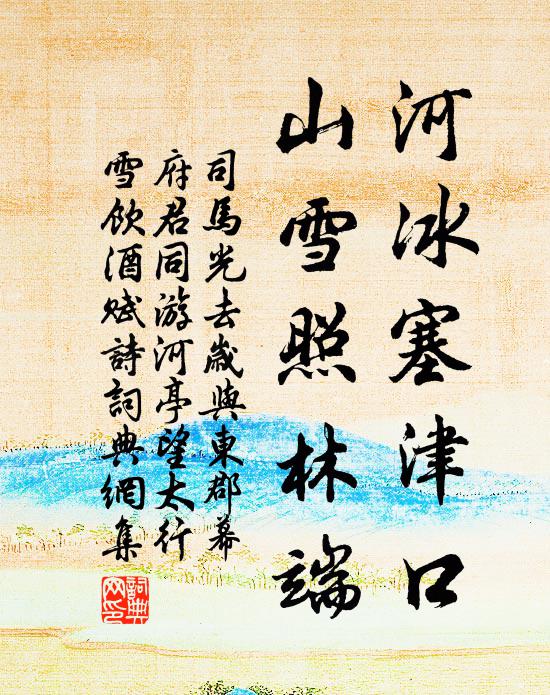 河冰塞津口
山雪照林端
司馬光去歲與東郡幕
府君同游河亭望太行
雪飲酒賦詩詞典網集